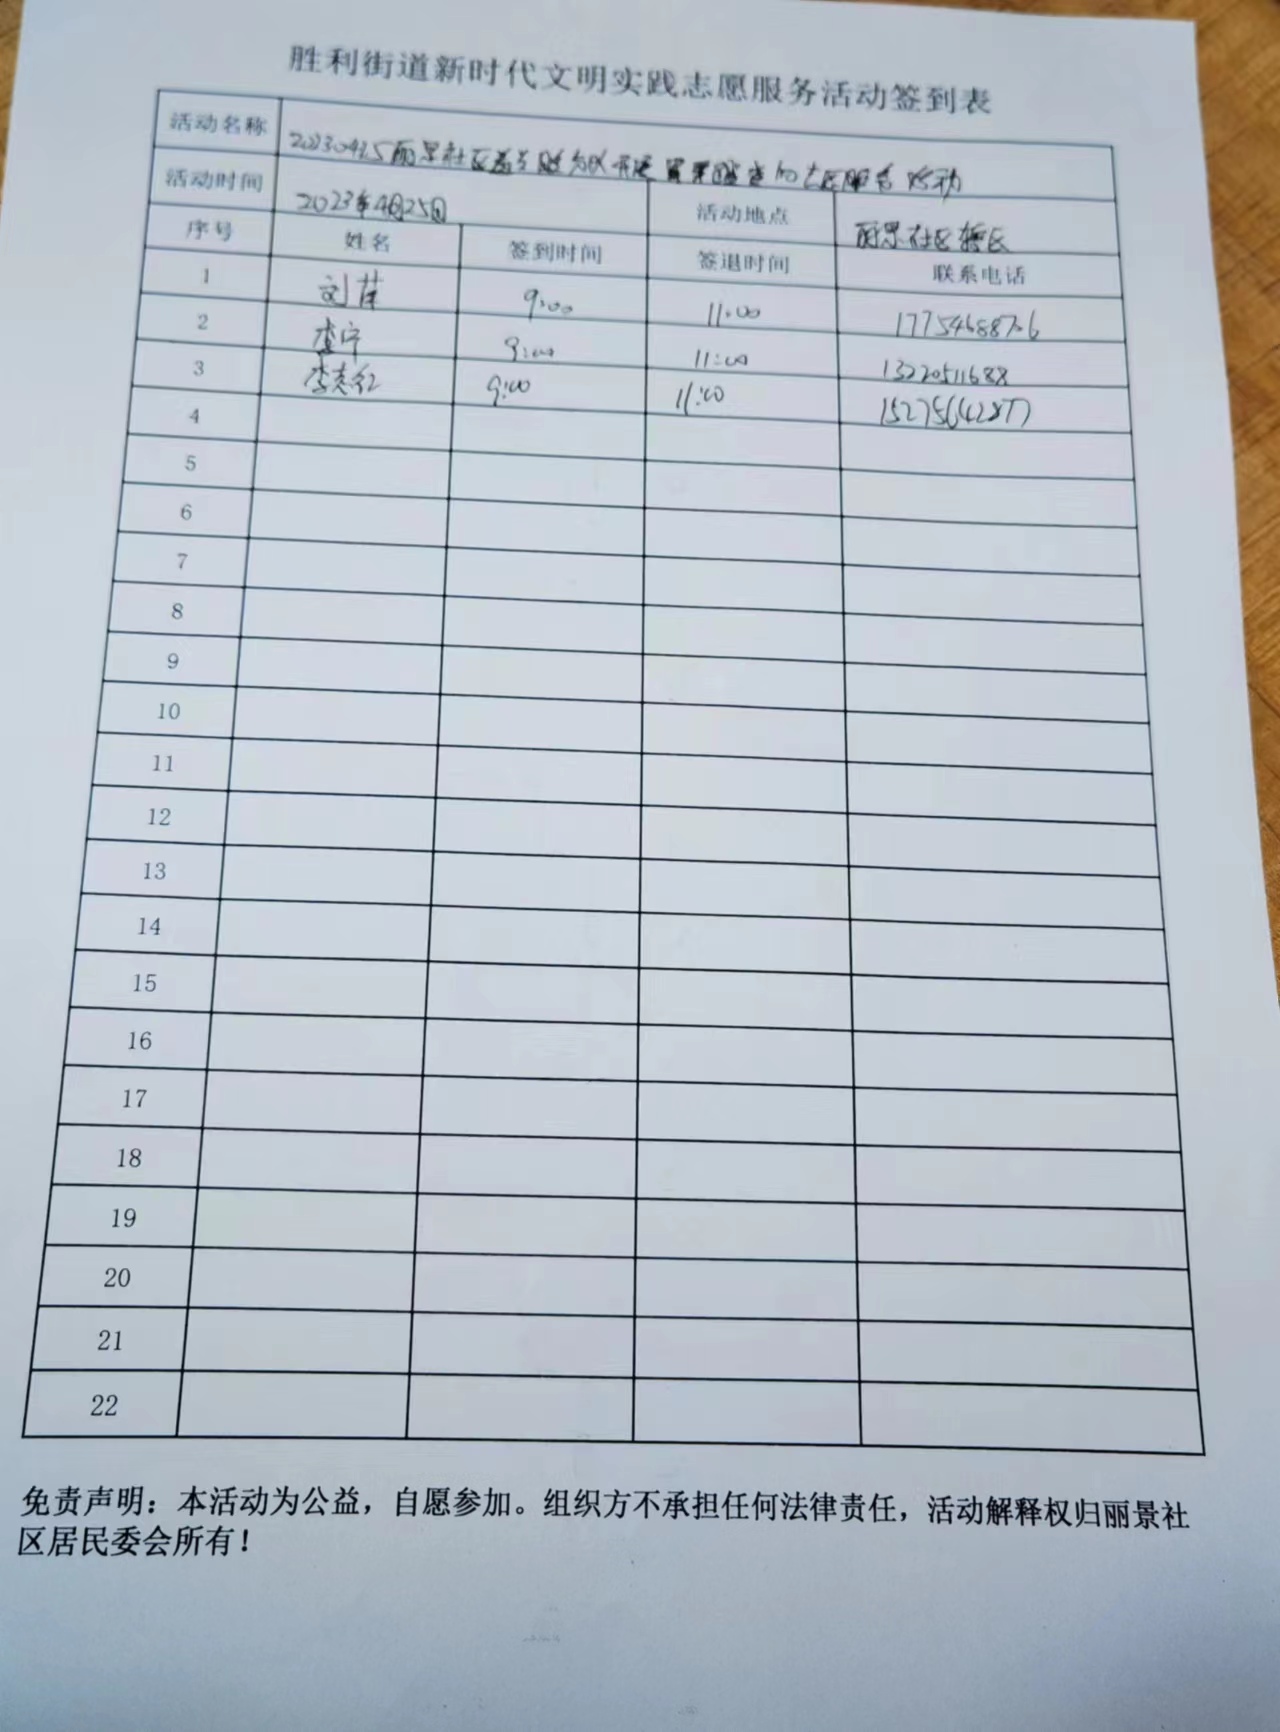 胜利街道新时代文明实践志愿服务活动签到表
活动名称 20230425丽景社区 活动
活动时间 2023年4月25日 活动地点 丽景社区辖区
序号 姓名 签到时间 签退时间 联系电话
1 刘 9:00 11:00
2 李宁 9:00 11:00 13220511688
3 李 红 9:00 11:00
4
5
6
7
8
9
10
11
12
13
14
15
16
17
18
19
20
21
22
免责声明：本活动为公益，自愿参加。组织方不承担任何法律责任，活动解释权归丽景社
区居民委会所有！